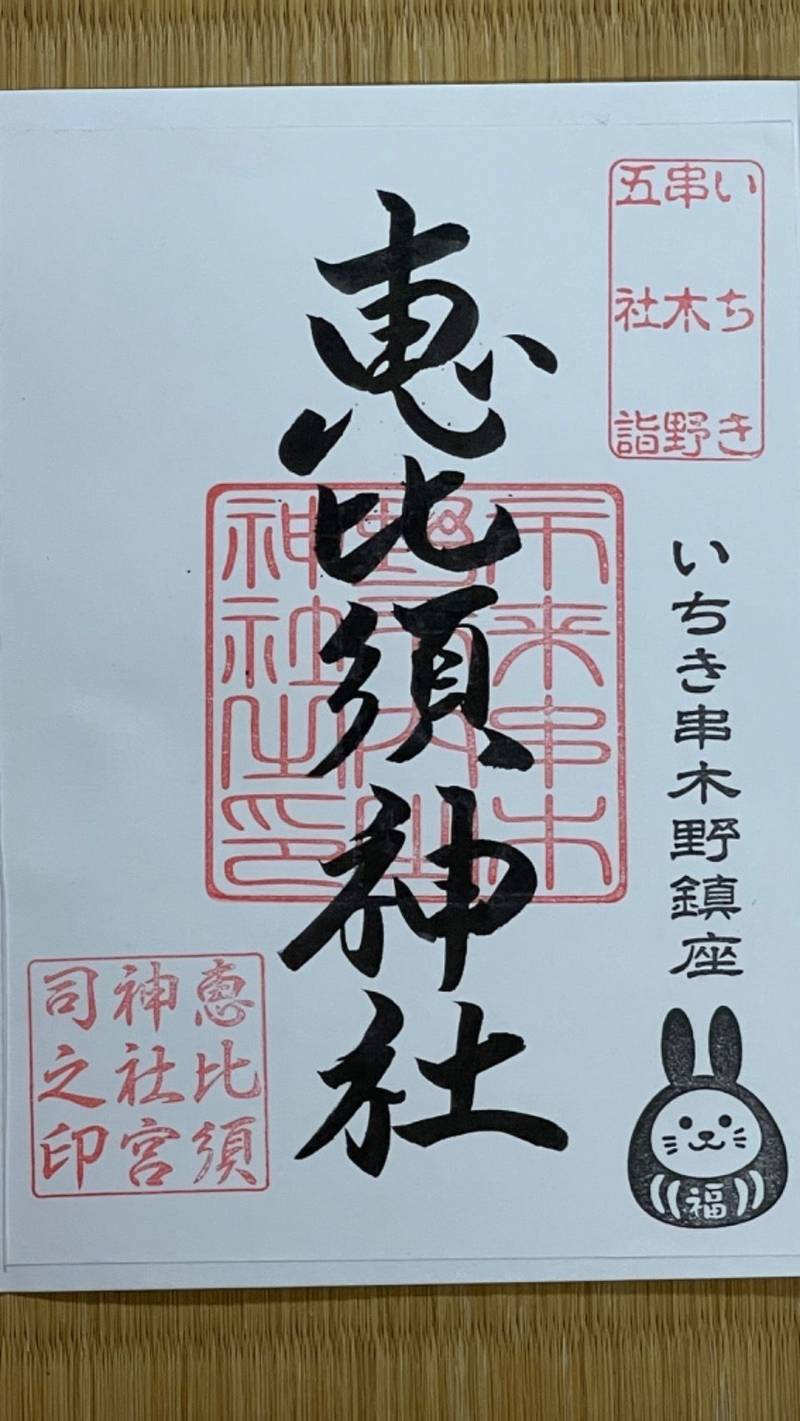 いちき
串木野
五社詣
いちき串木野鎮座
福
恵比須神社
市来串木
神社之印
恵比須
神社宮
司之印